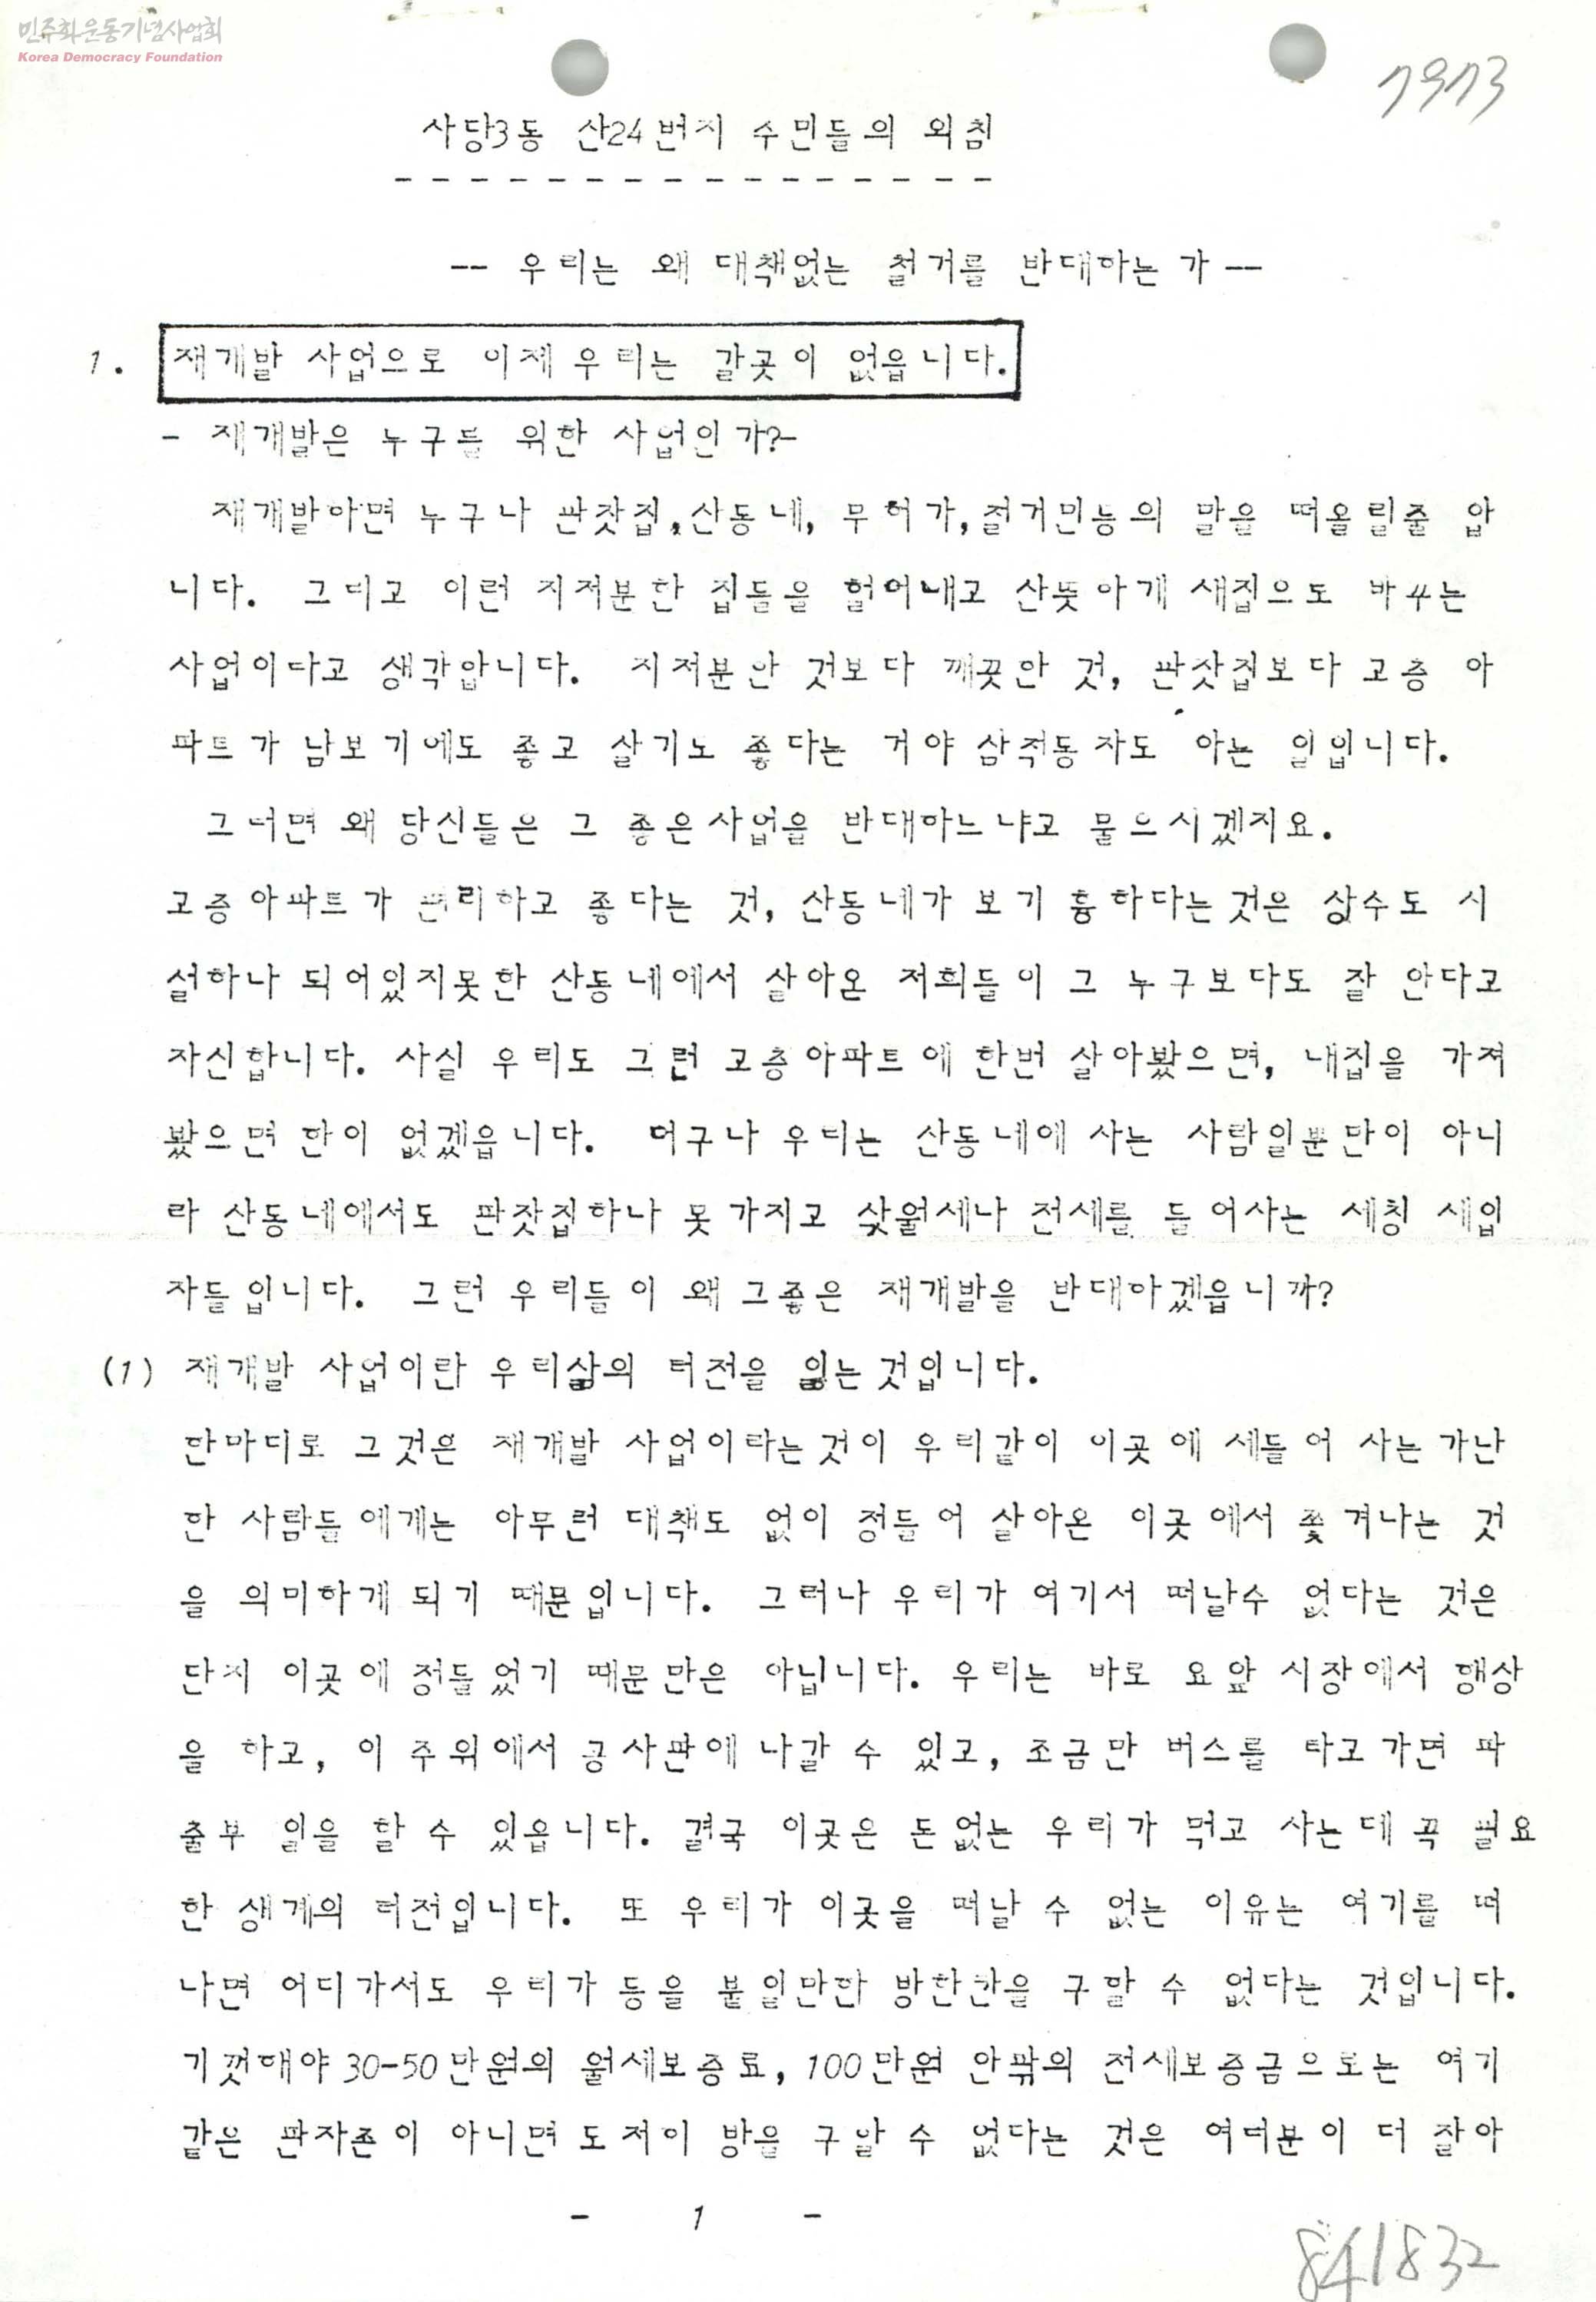 민주화운동기념사업회
Korea Democracy Foundation
7973
사당3동 산24번지 주민들의 외침
-- 우리는 왜 대책없는 철거를 반대하는가 --
1. 재개발 사업으로 이제 우리는 갈곳이 없읍니다.
- 재개발은 누구를 위한 사업인가?-
재개발하면 누구나 판잣집,산동네, 무허가,철거민등의 말을 떠올릴줄 압
니다. 그리고 이런 지저분한 집들을 헐어내고 산뜻하게 새집으로 바꾸는
사업이라고 생각합니다. 지저분한 것보다 깨끗한 것, 판잣집보다 고층 아
파트가 남보기에도 좋고 살기도 좋다는 거야 삼척동자도 아는 일입니다.
그러면 왜 당신들은 그 좋은사업을 반대하느냐고 물으시겠지요.
고층아파트가 편리하고 좋다는 것, 산동네가 보기 흉하다는것은 상수도 시
설하나 되어있지못한 산동네에서 살아온 저희들이 그 누구보다도 잘 안다고
자신합니다. 사실 우리도 그런 고층아파트에 한번 살아봤으면, 내집을 가져
봤으면 한이 없겠읍니다. 더구나 우리는 산동네에 사는 사람일뿐만이 아니
라 산동네에서도 판잣집하나 못가지고 삯월세나 전세를 들어사는 세칭 세입
자들입니다. 그런 우리들이 왜 그좋은 재개발을 반대하겠읍니까?
(1) 재개발 사업이란 우리삶의 터전을 잃는것입니다.
한마디로 그것은 재개발 사업이라는것이 우리같이 이곳에 세들어 사는가난
한 사람들에게는 아무런 대책도 없이 정들어 살아온 이곳에서 쫓겨나는 것
을 의미하게 되기 때문입니다. 그러나 우리가 여기서 떠날수 없다는 것은
단지 이곳에 정들었기 때문만은 아닙니다. 우리는 바로 요앞 시장에서 행상
을 하고, 이 주위에서 공사판에 나갈 수 있고, 조금만 버스를 타고가면 파
출부 일을 할 수 있읍니다. 결국 이곳은 돈없는 우리가 먹고 사는데 꼭 필요
한 생계의 터전입니다. 또 우리가 이곳을 떠날 수 없는 이유는 여기를 떠
나면 어디가서도 우리가 등을 붙일만한 방한칸을 구할 수 없다는 것입니다.
기껏해야 30-50만원의 월세보증료, 100만원 안팎의 전세보증금으로는 여기
같은 판자촌이 아니면 도저히 방을 구할 수 없다는 것은 여러분이 더 잘아
- 1 -
841832